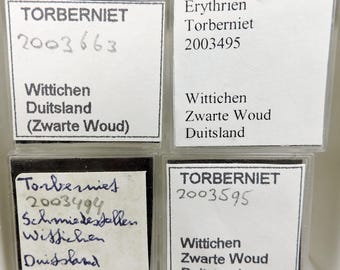 TORBERNIET
2003663
Wittichen
Duitsland
(Zwarte Woud)
Erythrien
Torberniet
2003495
Wittichen
Zwarte Woud
Duitsland
Torberniet
2003494
Schmiedestollen
Wittichen
Duitsland
TORBERNIET
2003595
Wittichen
Zwarte Woud
Duitsland